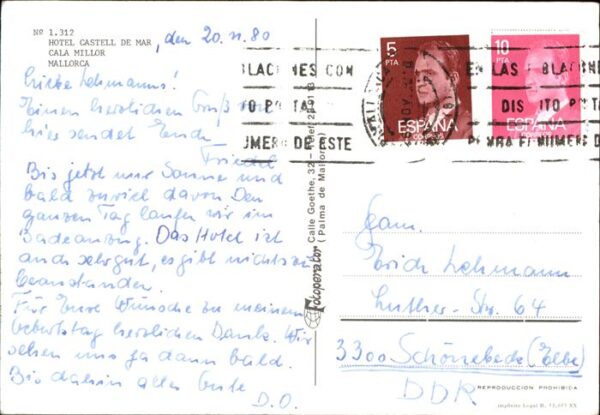 Nº 1.312
HOTEL CASTELL DE MAR
CALA MILLOR
MALLORCA
, den 20. 11. 80
Liebe Lehmanns!
Einen herzlichen Gruß von
hier sendet Euch
Friedel
Bis jetzt nur Sonne und
bald zuviel davon. Den
ganzen Tag laufen wir im
Badeanzug. Das Hotel ist
auch sehr gut, es gibt nichts zu
beanstanden.
Für Eure Wünsche zu meinem
Geburtstag herzlichen Dank. Wir
sehen uns ja dann bald.
Bis dahin alles Gute
D.O.
Fotoperator Calle Goethe, 32 -
( Palma de Mallorca )
5
PTA
ESPAÑA
CORREOS
10
PTA
ESPAÑA
BLACIONES CON
DISTRITO POSTAL
NUMERO DE ESTE
EN LAS POBLACIONES
DISTRITO POSTAL
NUMERO DE
Fam.
Erich Lehmann
Luther-Str. 64
3300 Schönebeck (Elbe)
DDR
REPRODUCCION PROHIBIDA